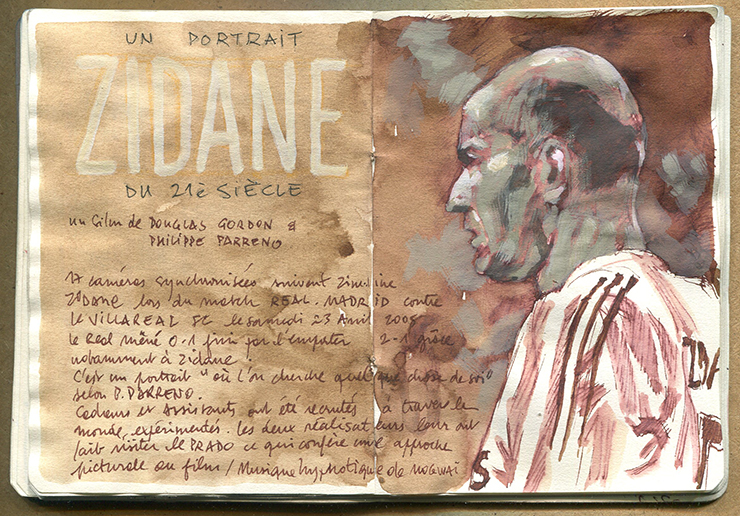 UN PORTRAIT
ZIDANE
DU 21è SIÈCLE
un film de DOUGLAS GORDON &
PHILIPPE PARRENO
17 caméras synchronisées suivent Zinedine
ZIDANE lors du match REAL MADRID contre
le VILLAREAL le samedi 23 Avril 2005
le Real mené 0-1 finit par l'emporter 2-1 grâce
notamment à Zidane
C'est un portrait "où l'on cherche quelque chose de soi"
selon P. PARRENO.
Cadreurs et Assistants ont été recrutés à travers le
monde, expérimentés. les deux réalisateurs leur ont
fait visiter le PRADO ce qui confère une approche
picturale au film / Musique hypnotique de MOGWAI
S